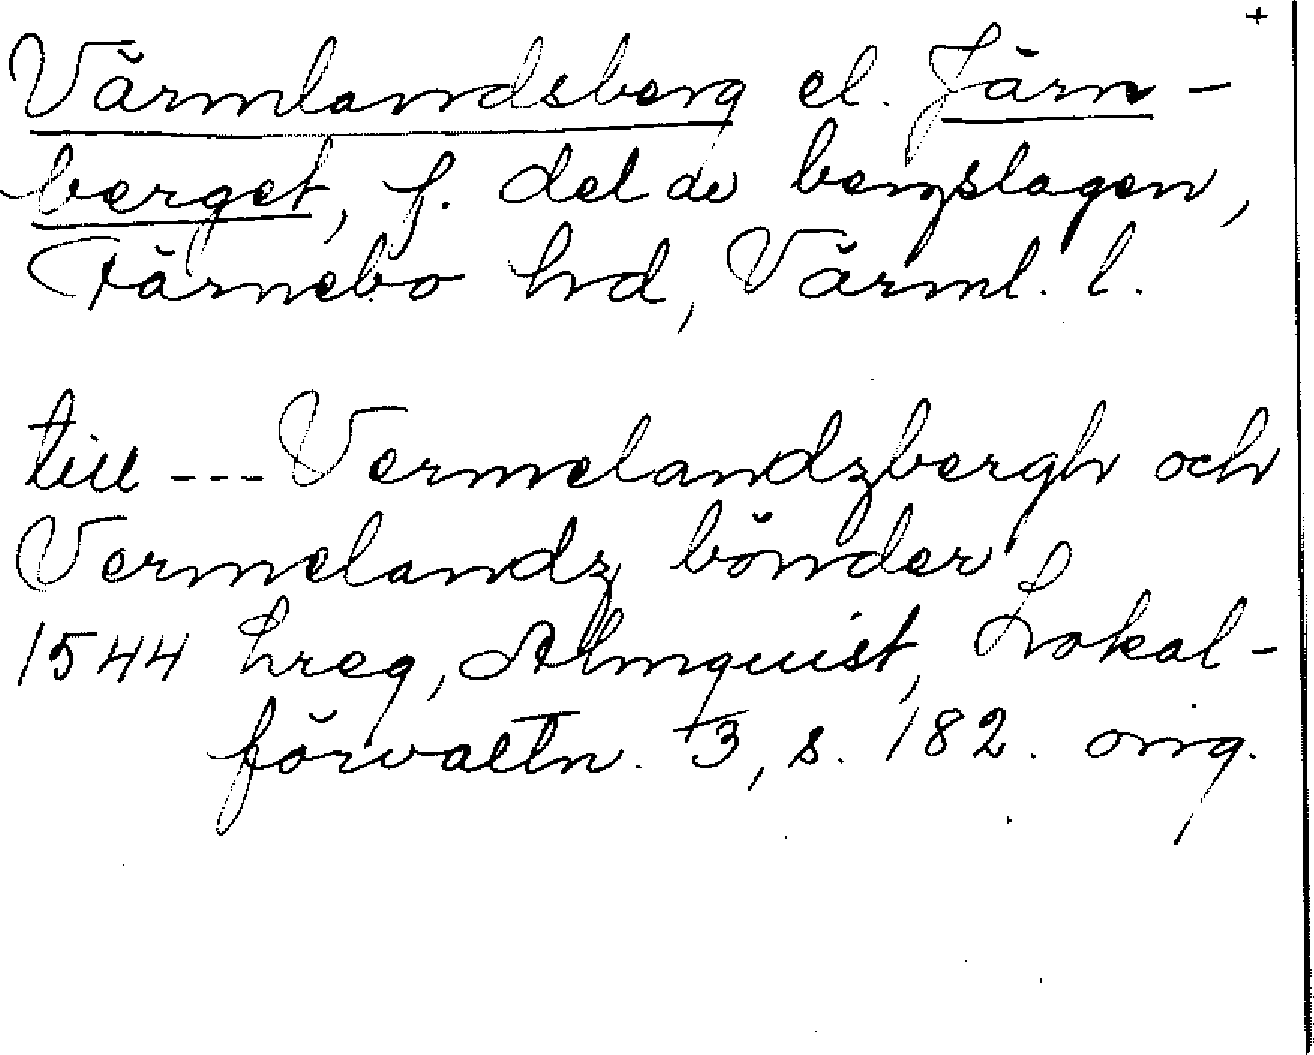 +
Värmlandsberg el. Järn-
berget, f. del av bergslagen,
Färnebo hd, Värml. l.
till --- Vermelandzbergh och
Vermelandz bönder
1544 Lreg, Almquist, Lokal-
förvaltn. 3, s. 182. orig.